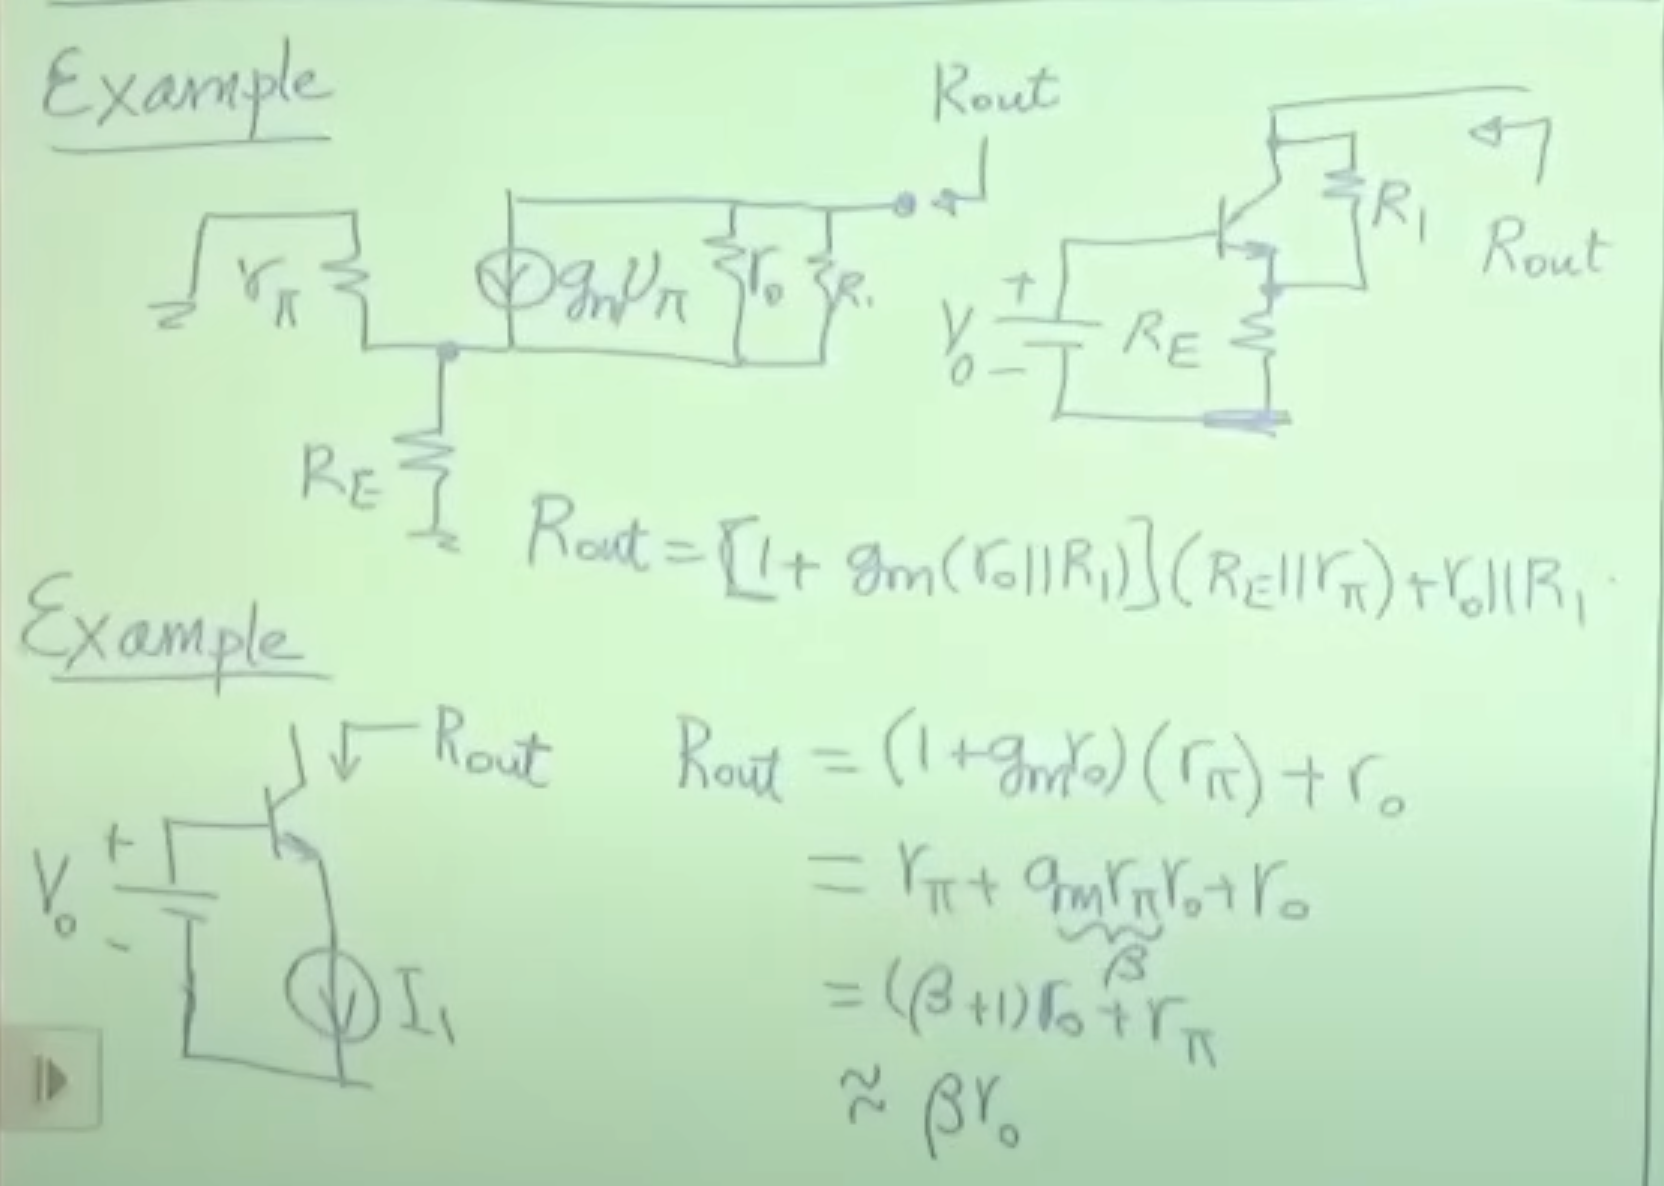 Example
Rout
rπ
gmvπ
ro
R1
RE
R1
Rout
+
Vo
−
RE
Rout = [1 + gm(ro||R1)](RE||rπ) + ro||R1
Example
Rout
+
Vo
-
I1
Rout = (1 + gmro)(rπ) + ro
= rπ + gmrπro + ro
β
= (β+1)ro + rπ
≈ βro